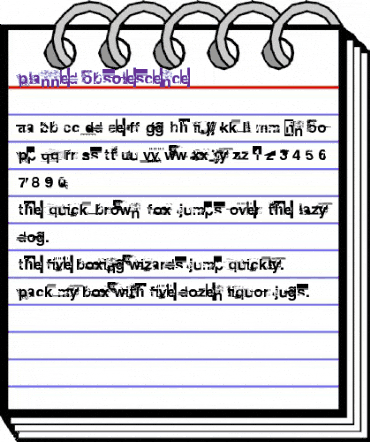 planned obsolescence
aa bb cc dd ee ff gg hh ii jj kk ll mm nn oo
pp qq rr ss tt uu vv ww xx yy zz 1 2 3 4 5 6
7 8 9 0
the quick brown fox jumps over the lazy
dog.
the five boxing wizards jump quickly.
pack my box with five dozen liquor jugs.